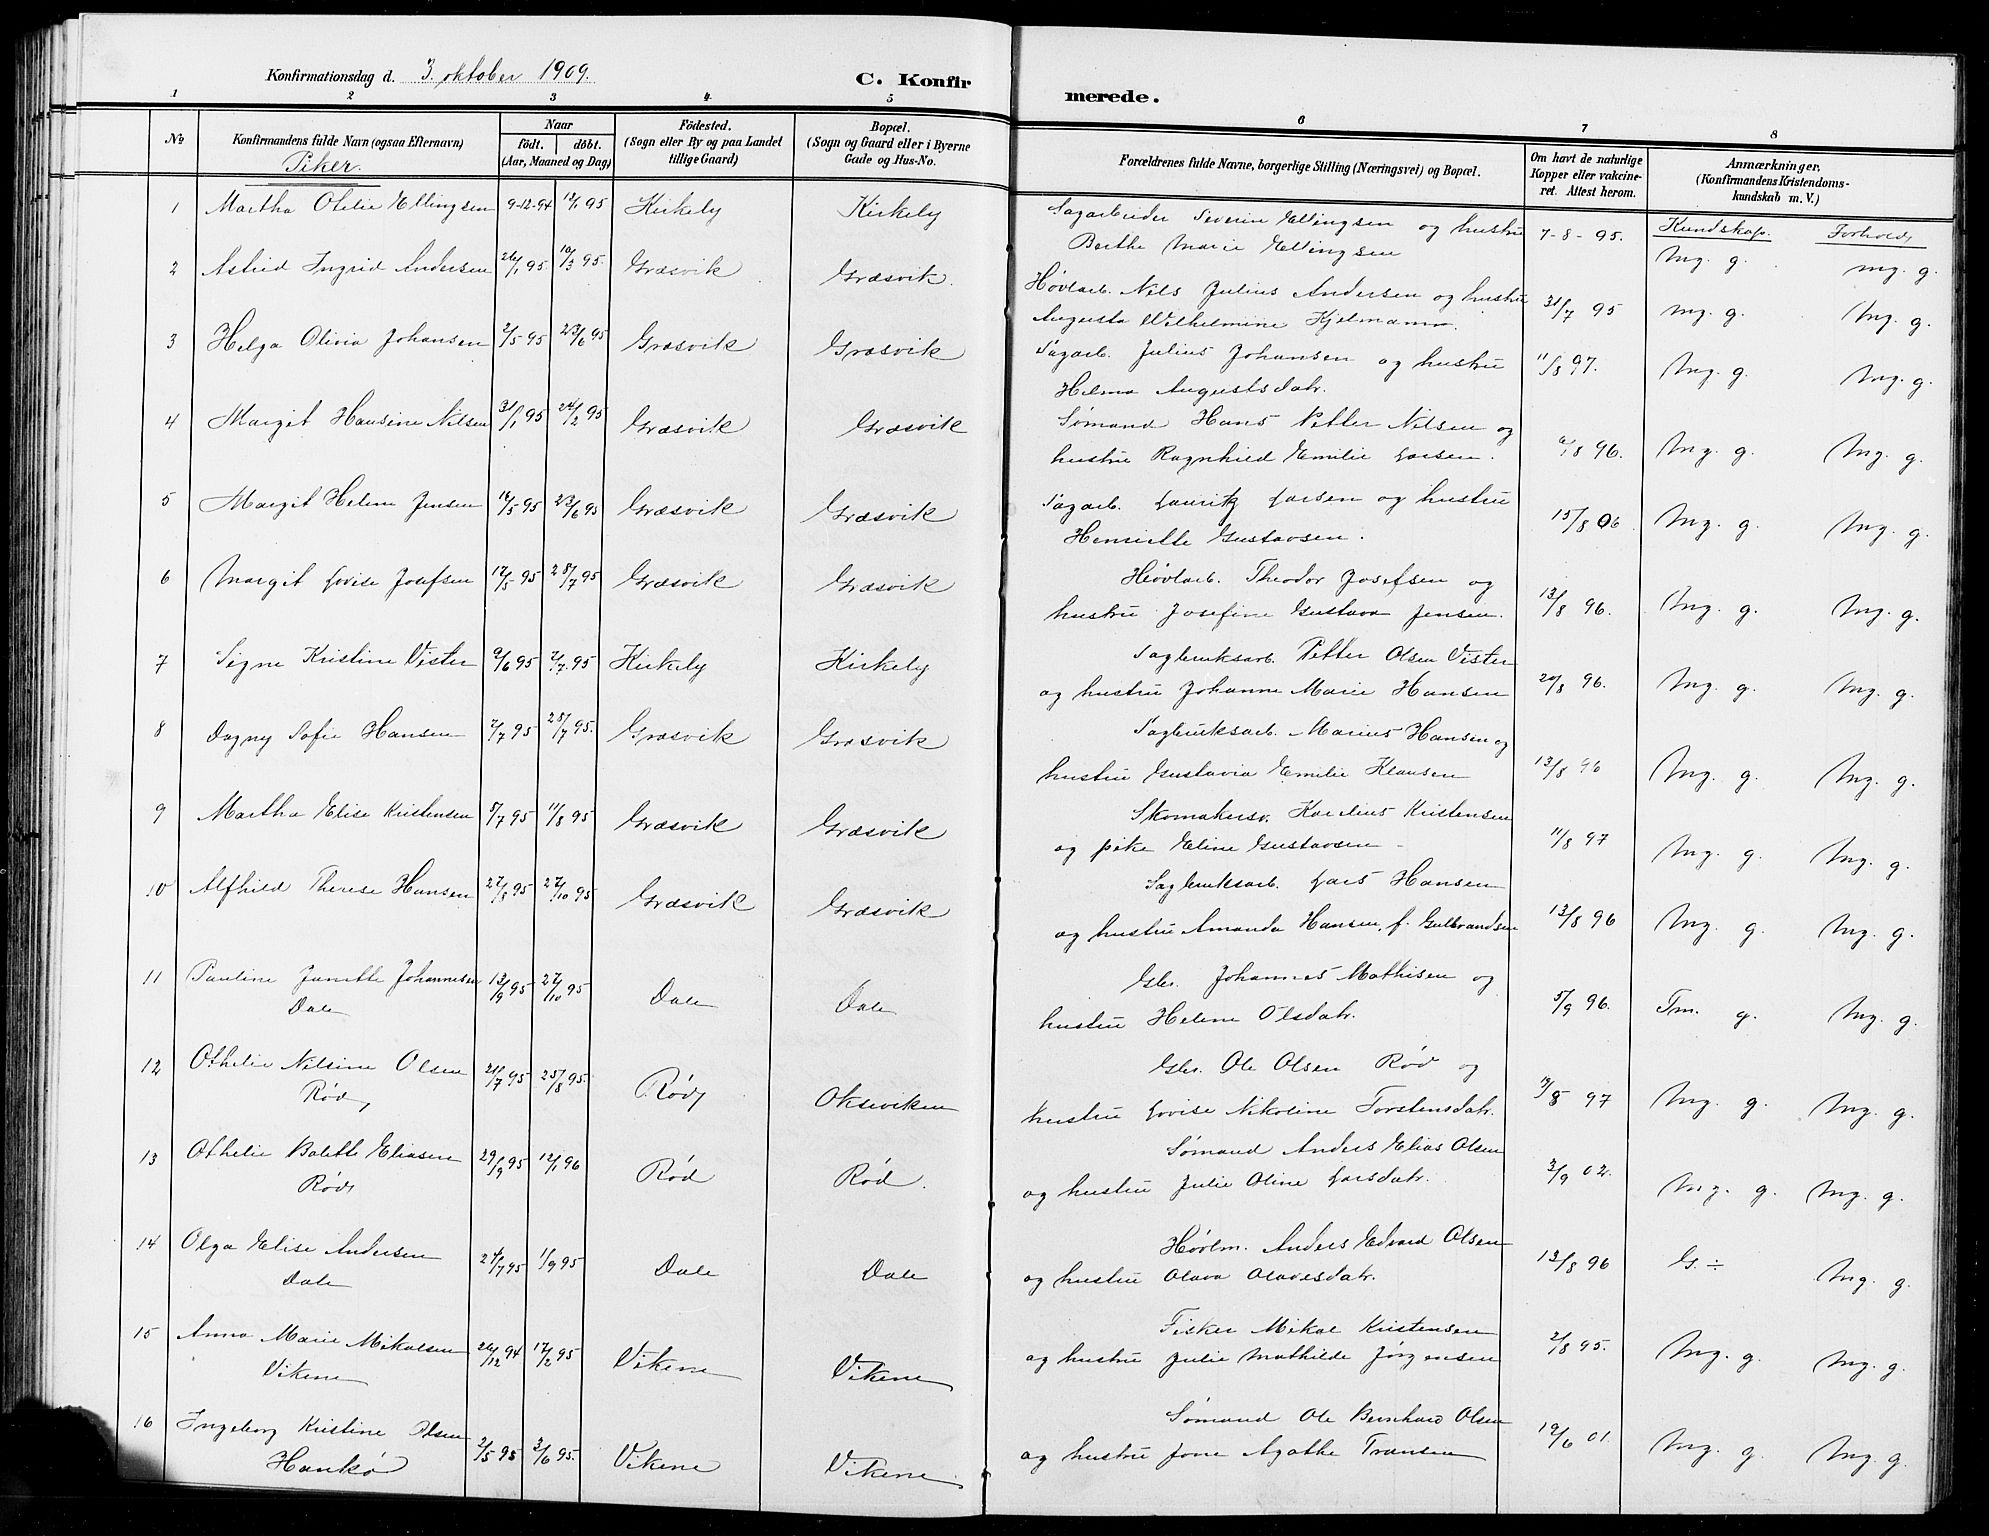 Konfirmationsdag d. 3. oktober 1909.
C. Konfir merede.
1 2 3 4 5 6 7 8
No
Konfirmandens fulde Navn (ogsaa Efternavn)
Naar
födt. döbt.
(Aar, Maaned og Dag)
Födested.
(Sogn eller By og paa Landet
tillige Gaard)
Bopæl.
(Sogn og Gaard eller i Byerne
Gade og Hus-No.
Forældrenes fulde Navne, borgerlige Stilling (Næringsvei) og Bopæl.
Om havt de naturlige
Kopper eller vakcine-
ret. Attest herom.
Anmærkninger,
(Konfirmandens Kristendoms-
kundskab m. V.)
Piker.
Kundskap. Forhold
1 Martha Otilie Ellingsen 9-12-94 13/1 95 Kirkely Kirkely Sagarbeider Severin Ellingsen og hustru 7-8-95. Mg. g. mg. g.
Berthe Marie Ellingsen
2 Astrid Ingrid Andersen 26/1 95 10/3 95. Græsvik Græsvik. Høvlarb. Nils Julius Andersen og hustru 31/7 95 mg. g. Mg. g.
Augusta Wilhelmine Kjelmann.
3 Helga Olivia Johansen 2/5 95 23/6 95 Græsvik Græsvik Sagarb. Julius Johansen og hustru 11/8 97. Mg. g. Mg. g.
Helma Augustsdatr.
4 Margit Hansine Nilsen 31/1 95 24/2 95 Græsvik Græsvik Sømand Hans Petter Nilsen og
hustru Ragnhild Emilie Larsen. 8 96. Mg. g. Mg. g.
5 Margit Helene Jensen 14/5 95 23/6 95 Græsvik Græsvik Sagarb. Lauritz Larsen og hustru 15/8 06. Mg. g. Mg. g.
Henriette Gustavsen.
6 Margit Lovise Josefsen 17/5 95 28/7 95 Græsvik Græsvik Høvlarb. Theodor Josefsen og
hustru Josefine Gustava Jensen. 13/8 96. Mg. g. Mg. g.
7 Signe Kristine Vister 9/6 95 7/7 95 Kirkely Kirkely Sagbruksarb. Petter Olsen Vister
og hustru Johanne Marie Hansen 20/8 96. Mg. g. Mg. g.
8 Dagny Sofie Hansen 7/7 95 28/7 95. Græsvik Græsvik Sagbruksarb. Marius Hansen og
hustru Gustavia Emilie Klausen 13/8 96 Mg. g. Mg. g.
9 Martha Elise Kristensen 5/7 95 11/8 95 Græsvik Græsvik Skomakersv. Kornelius Kristensen
og pike Eline Gustavsen 11/8 97 Mg. g. Mg. g.
10 Alfhild Therese Hansen 27/8 95 27/10 95 Græsvik Græsvik Sagbruksarb. Lars Hansen
og hustru Amanda Hansen, f. Gulbrandsen 13/8 96 Mg. g. Mg. g.
11 Pauline Janette Johannesen 13/9 95 27/10 95 Dale Dale Gbr. Johannes Mathisen og
Dale hustru Helene Olsdatr. 5/9 96. Tm. g. Mg. g.
12 Othelie Nilsine Olsen 21/7 95 25/8 95. Rød Oksviken Gbr. Ole Olsen Rød og
Rød hustru Lovise Nikoline Torstensdatr. /8 97 Mg. g. Mg. g.
13 Othelie Bolette Eliasen 29/9 95 12/1 96 Rød Rød. Sømand Anders Elias Olsen
Rød og hustru Julie Oline Larsdatr. 3/9 02. Mg. g. Mg. g.
14 Olga Elise Andersen 24/7 95 1/9 95 Dale Dale Høvlm. Anders Edvard Olsen
Dale og hustru Olava Olavesdatr. 13/8 96 G. ÷ Mg. g.
15 Anna Marie Mikalsen 26/12 94 17/2 95 Vikene Vikene Fisker Mikal Kristensen
Vikene og hustru Julie Mathilde Jørgensen 2/8 95. Mg. g. Mg. g.
16 Ingeborg Kristine Olsen 2/5 95 3/6 95. Vikene Vikene Sømand Ole Bernhard Olsen
Hankø og hustru Jone Agathe Transen 19/6 01. Mg. g. Mg. g.